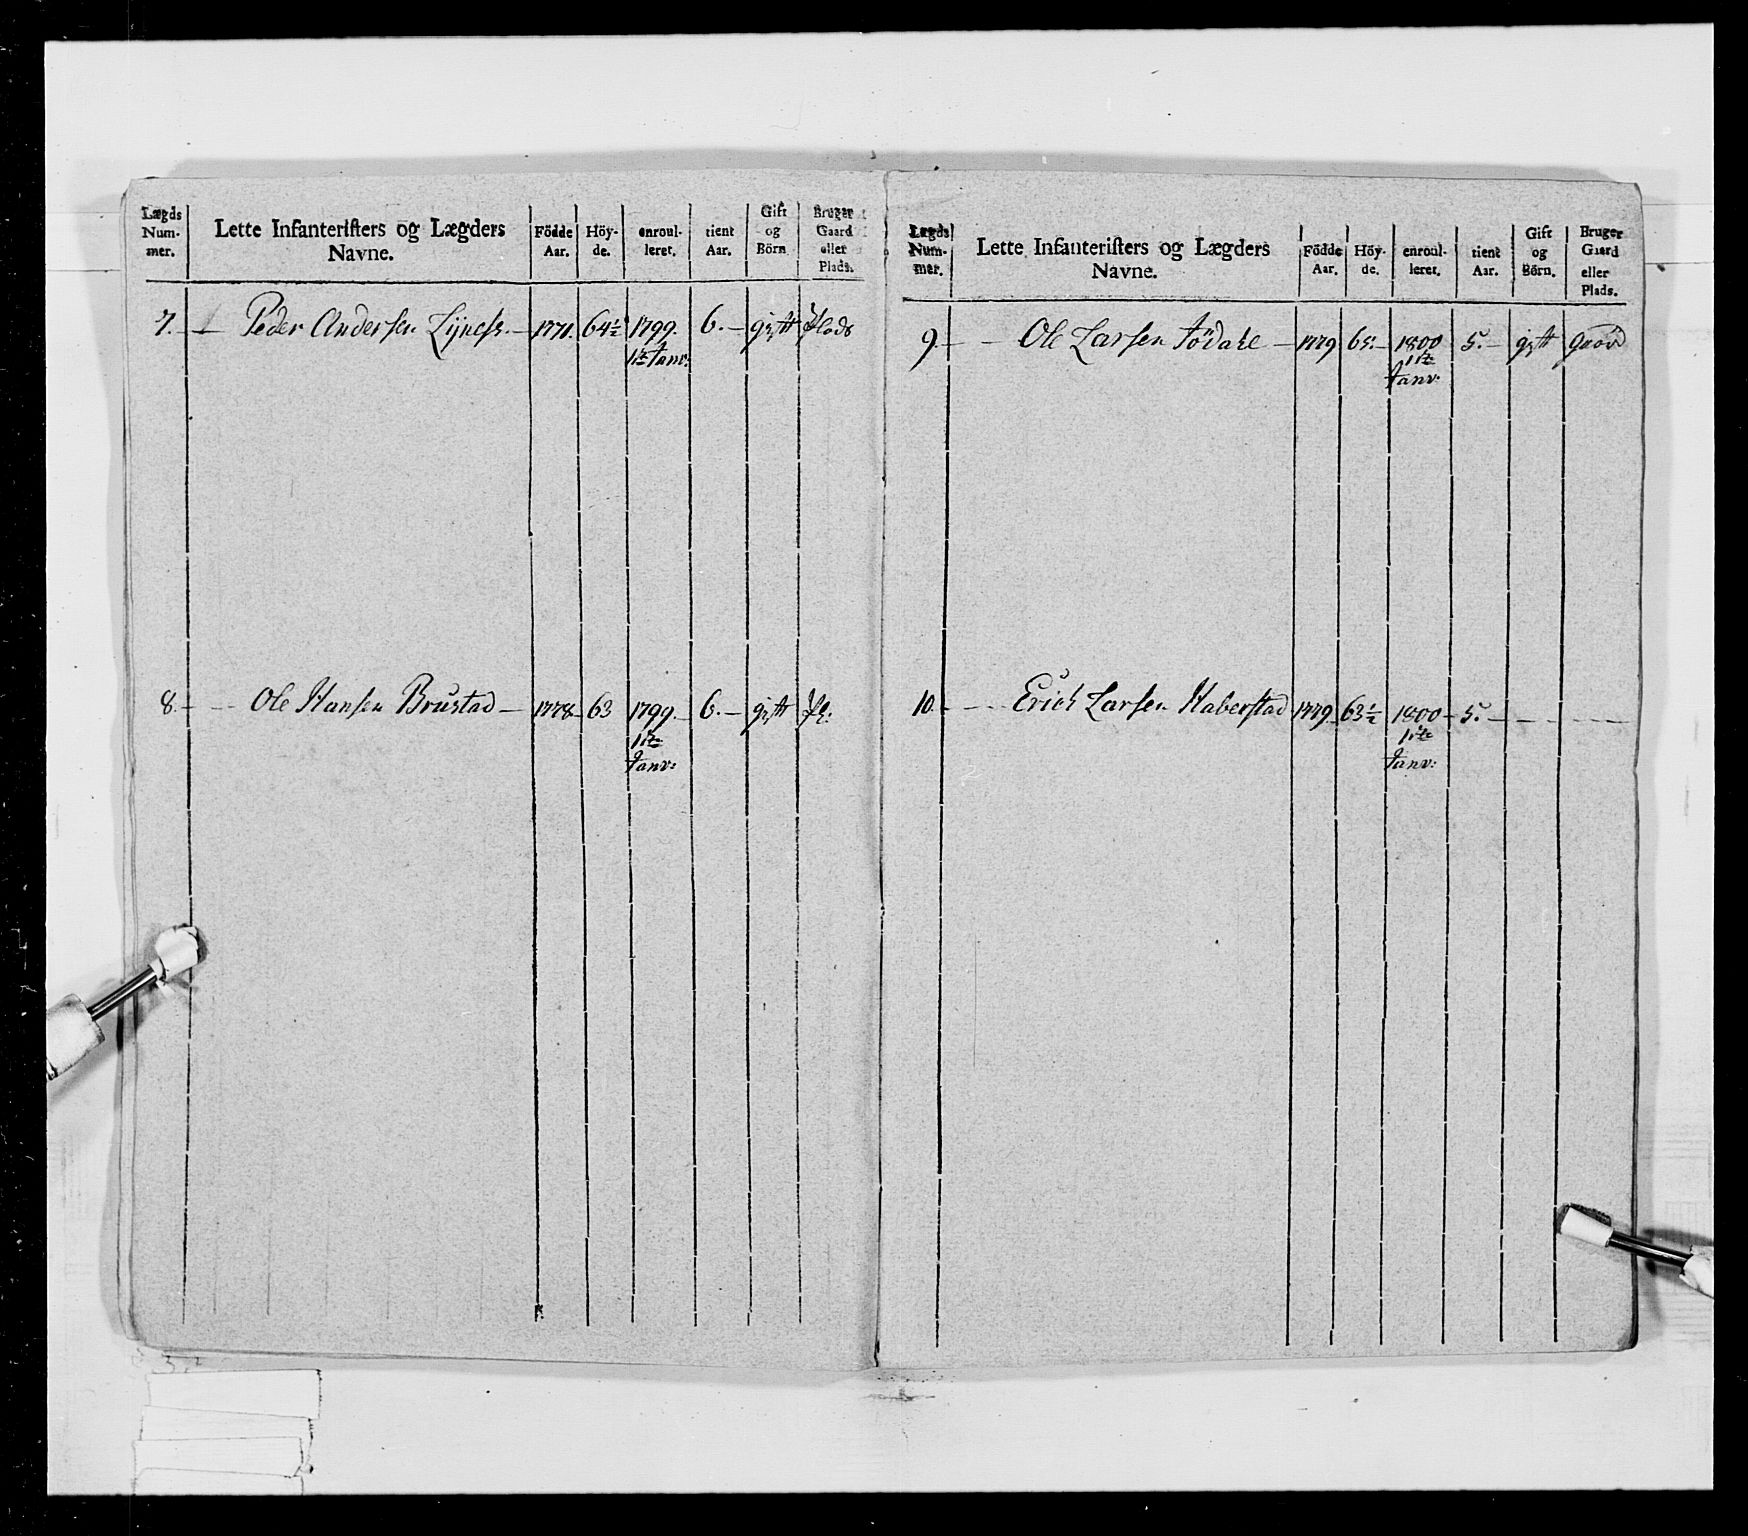 Lægds Num- mer. Lette Infanterister og Lægders Navne. Födde Aar. Höy- de. enroul- leret. tient Aar. Gift og Börn Bruger Gaard eller Plads.
7. Peder Andersen 1771. 64½ 1799. 6. gift Plads
1te Janv:
8. Ole Hansen Brustad 1778 63 1799. 6. gift Pl:
1te
Janv:
Lægds Num- mer. Lette Infanterister og Lægders Navne. Födde Aar. Höy- de. enroul- leret. tient Aar. Gift og Börn. Bruger Gaard eller Plads.
9. Ole Larsen 1779 65. 1800 5. gift gaard
1te
Janv:
10. Erich Larsen Haberstad 1779 63½ 1800 5.
1te
Janv: